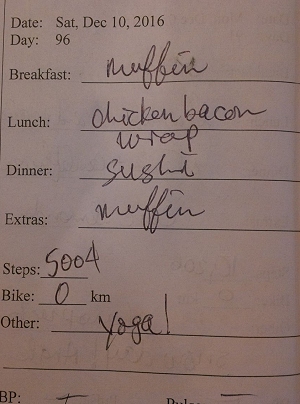 Date: Sat, Dec 10, 2016
Day: 96
Breakfast: muffin
Lunch: chicken bacon
wrap
Dinner: sushi
Extras: muffin
Steps: 5004
Bike: 0 km
Other: yoga!
BP: